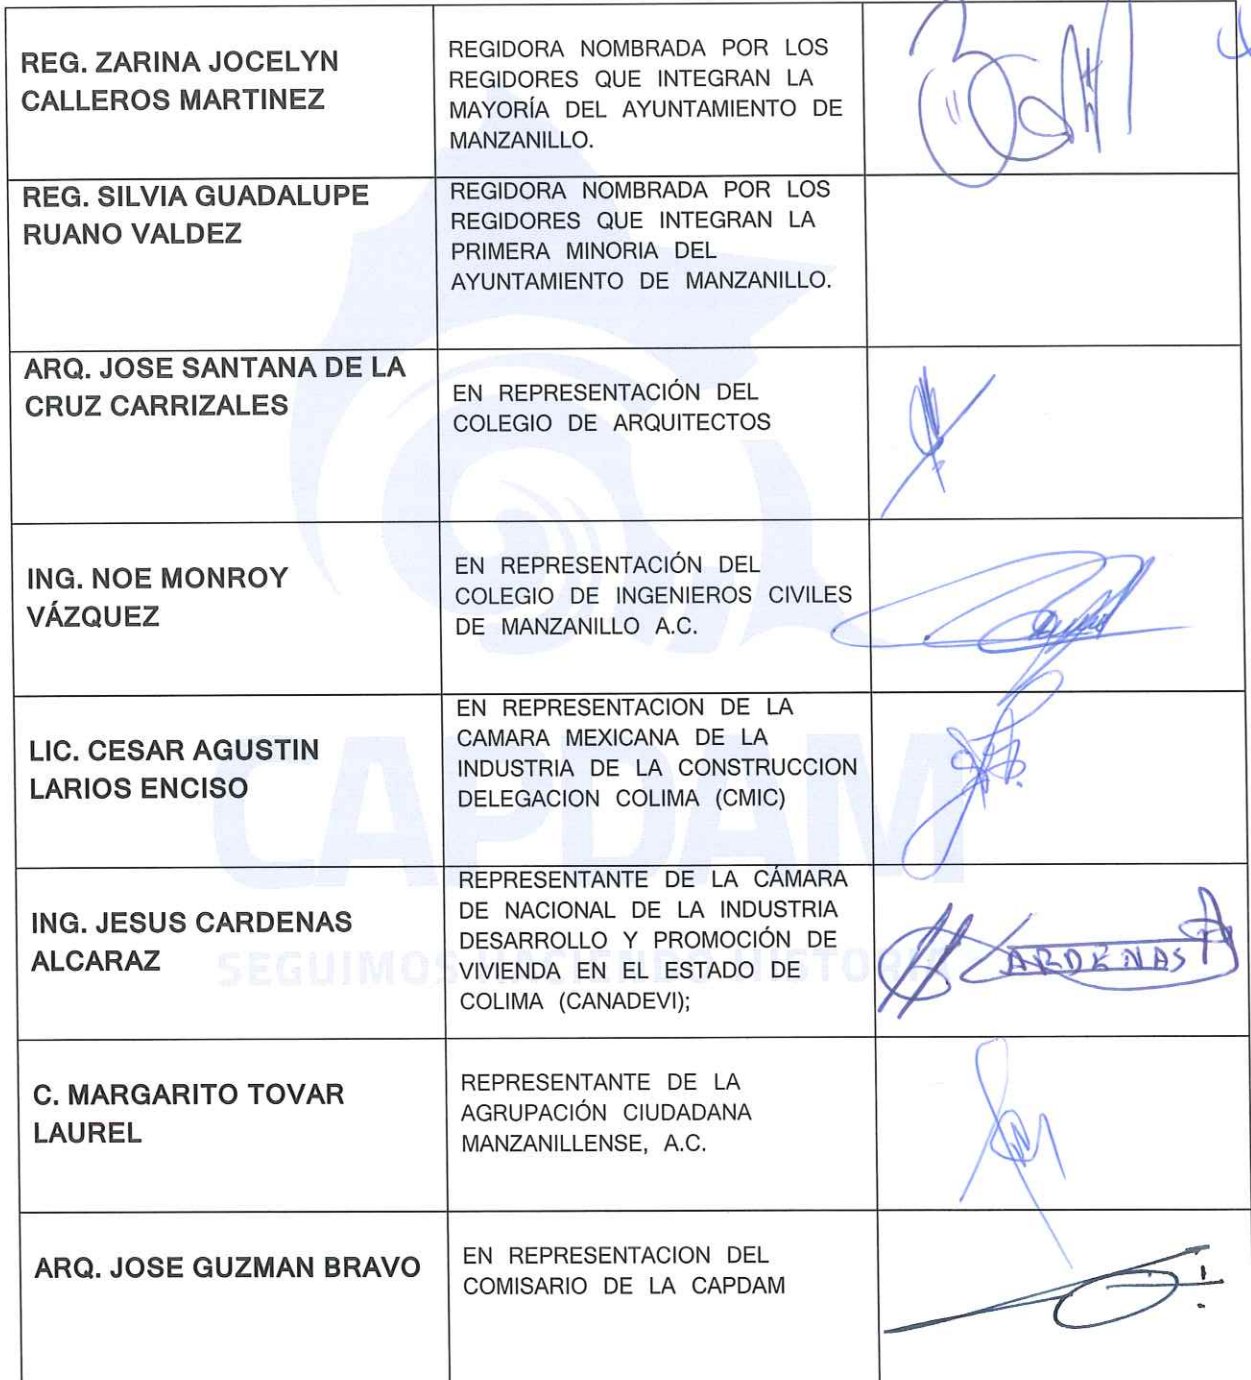 REG. ZARINA JOCELYN
CALLEROS MARTINEZ
REGIDORA NOMBRADA POR LOS
REGIDORES QUE INTEGRAN LA
MAYORÍA DEL AYUNTAMIENTO DE
MANZANILLO.
REG. SILVIA GUADALUPE
RUANO VALDEZ
REGIDORA NOMBRADA POR LOS
REGIDORES QUE INTEGRAN LA
PRIMERA MINORIA DEL
AYUNTAMIENTO DE MANZANILLO.
ARQ. JOSE SANTANA DE LA
CRUZ CARRIZALES
EN REPRESENTACIÓN DEL
COLEGIO DE ARQUITECTOS
ING. NOE MONROY
VÁZQUEZ
EN REPRESENTACIÓN DEL
COLEGIO DE INGENIEROS CIVILES
DE MANZANILLO A.C.
LIC. CESAR AGUSTIN
LARIOS ENCISO
EN REPRESENTACION DE LA
CAMARA MEXICANA DE LA
INDUSTRIA DE LA CONSTRUCCION
DELEGACION COLIMA (CMIC)
CAPDAM
ING. JESUS CARDENAS
ALCARAZ
REPRESENTANTE DE LA CÁMARA
DE NACIONAL DE LA INDUSTRIA
DESARROLLO Y PROMOCIÓN DE
VIVIENDA EN EL ESTADO DE
COLIMA (CANADEVI);
CARDENAS
SEGUIMOS HACIENDO HISTORIA
C. MARGARITO TOVAR
LAUREL
REPRESENTANTE DE LA
AGRUPACIÓN CIUDADANA
MANZANILLENSE, A.C.
ARQ. JOSE GUZMAN BRAVO
EN REPRESENTACION DEL
COMISARIO DE LA CAPDAM